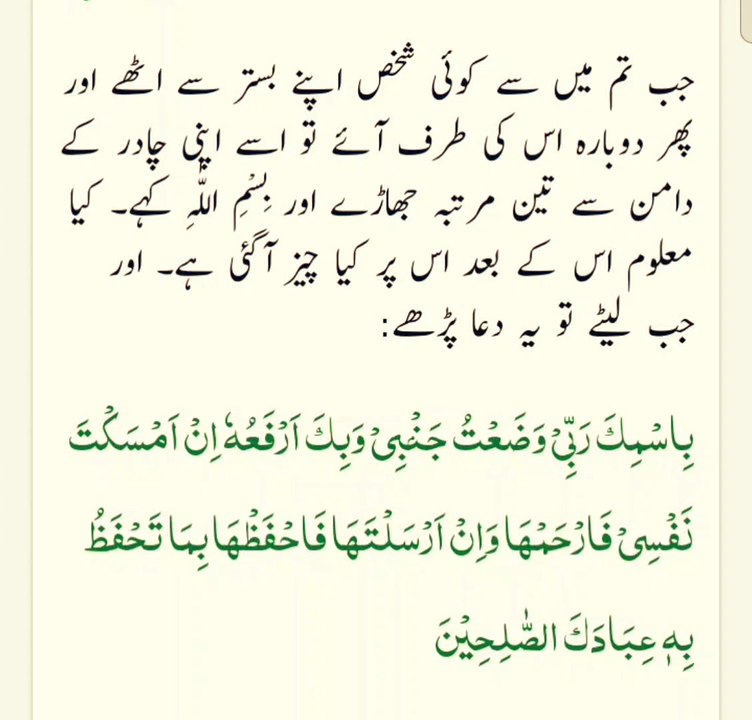 جب تم میں سے کوئی شخص اپنے بستر سے اٹھے اور
پھر دوبارہ اس کی طرف آئے تو اسے اپنی چادر کے
دامن سے تین مرتبہ جھاڑے اور بِسْمِ اللّٰهِ کہے۔ کیا
معلوم اس کے بعد اس پر کیا چیز آگئی ہے۔ اور
جب لیٹے تو یہ دعا پڑھے:
بِاسْمِكَ رَبِّیْ وَضَعْتُ جَنْۢبِیْ وَبِكَ اَرْفَعُهٗ اِنْ اَمْسَكْتَ
نَفْسِیْ فَارْحَمْهَا وَاِنْ اَرْسَلْتَهَا فَاحْفَظْهَا بِمَا تَحْفَظُ
بِهٖ عِبَادَكَ الصّٰلِحِیْنَ